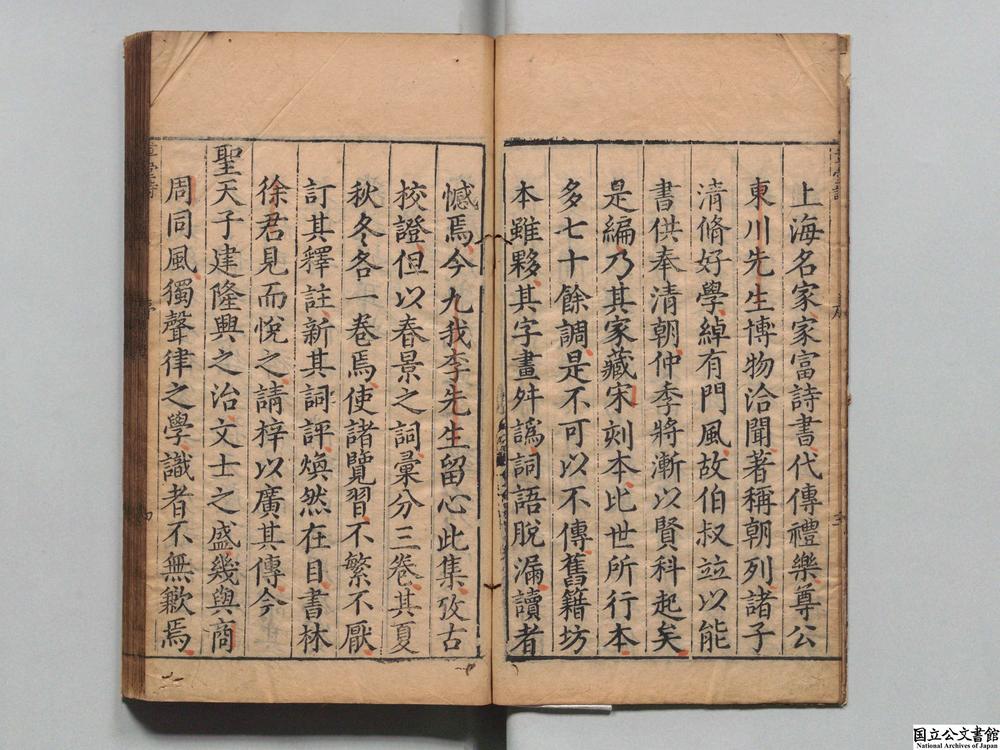 上海名家家富詩書代傳禮樂尊公
東川先生博物洽聞著稱朝列諸子
清脩好學綽有門風故伯叔竝以能
書供奉清朝仲季將漸以賢科起矣
是編乃其家藏宋刻本比世所行本
多七十餘調是不可以不傳舊籍坊
本雖夥其字畫舛譌詞語脫漏讀者
憾焉今九我李先生留心此集攷古
校證但以春景之詞彙分三卷其夏
秋冬各一卷焉使諸覽習不繁不厭
訂其釋註新其詞評煥然在目書林
徐君見而悅之請梓以廣其傳今
聖天子建隆興之治文士之盛幾與商
周同風獨聲律之學識者不無歉焉
国立公文書館
National Archives of Japan